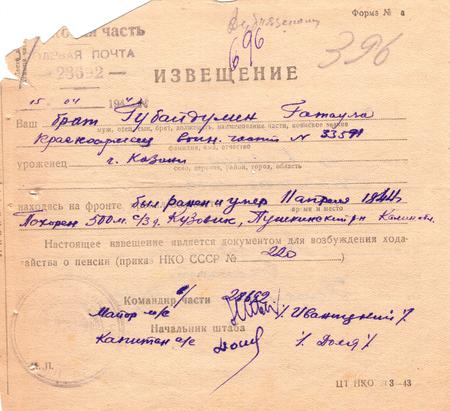 Форма № а
часть
ПОЛЕВАЯ ПОЧТА
28692
696
396
ИЗВЕЩЕНИЕ
15 04 194
Ваш брат Губайдулин Гатаула
муж, отец, сын, брат, должность, наименование части, воинское звание
Красноармеец воин. части № 33591
фамилия, имя, отчество
уроженец г. Казани
село, деревня, город, область
находясь на фронте был ранен и умер 11 апреля 1944
время и место
Похорон 500 м. с/з д. Кузовик, Пушкинский р-н Калинов.
Настоящее извещение является документом для возбуждения хода-
тайства о пенсии (приказ НКО СССР № 220 )
Командир части 28692
Майор /Иваницкий/
Начальник штаба
Капитан а/с /Доля/
М. П.
ЦТ НКО 3—43